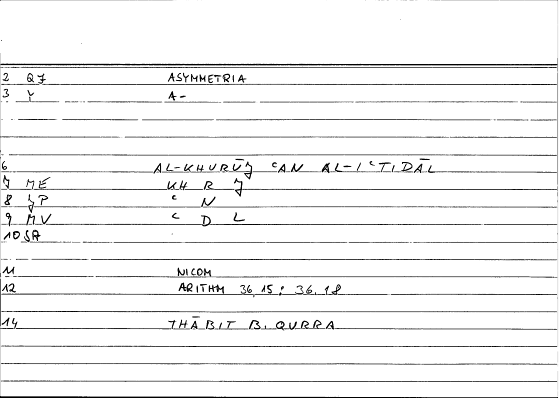 2 QJ ASYMMETRIA
3 Y A-
6 AL-KHURŪJ ᶜAN AL-IᶜTIDĀL
7 ME KH R J
8 JP ᶜ N
9 MV ᶜ D L
10 SA
11 NICOM
12 ARITHM 36,15; 36,18
14 THĀBIT B. QURRA